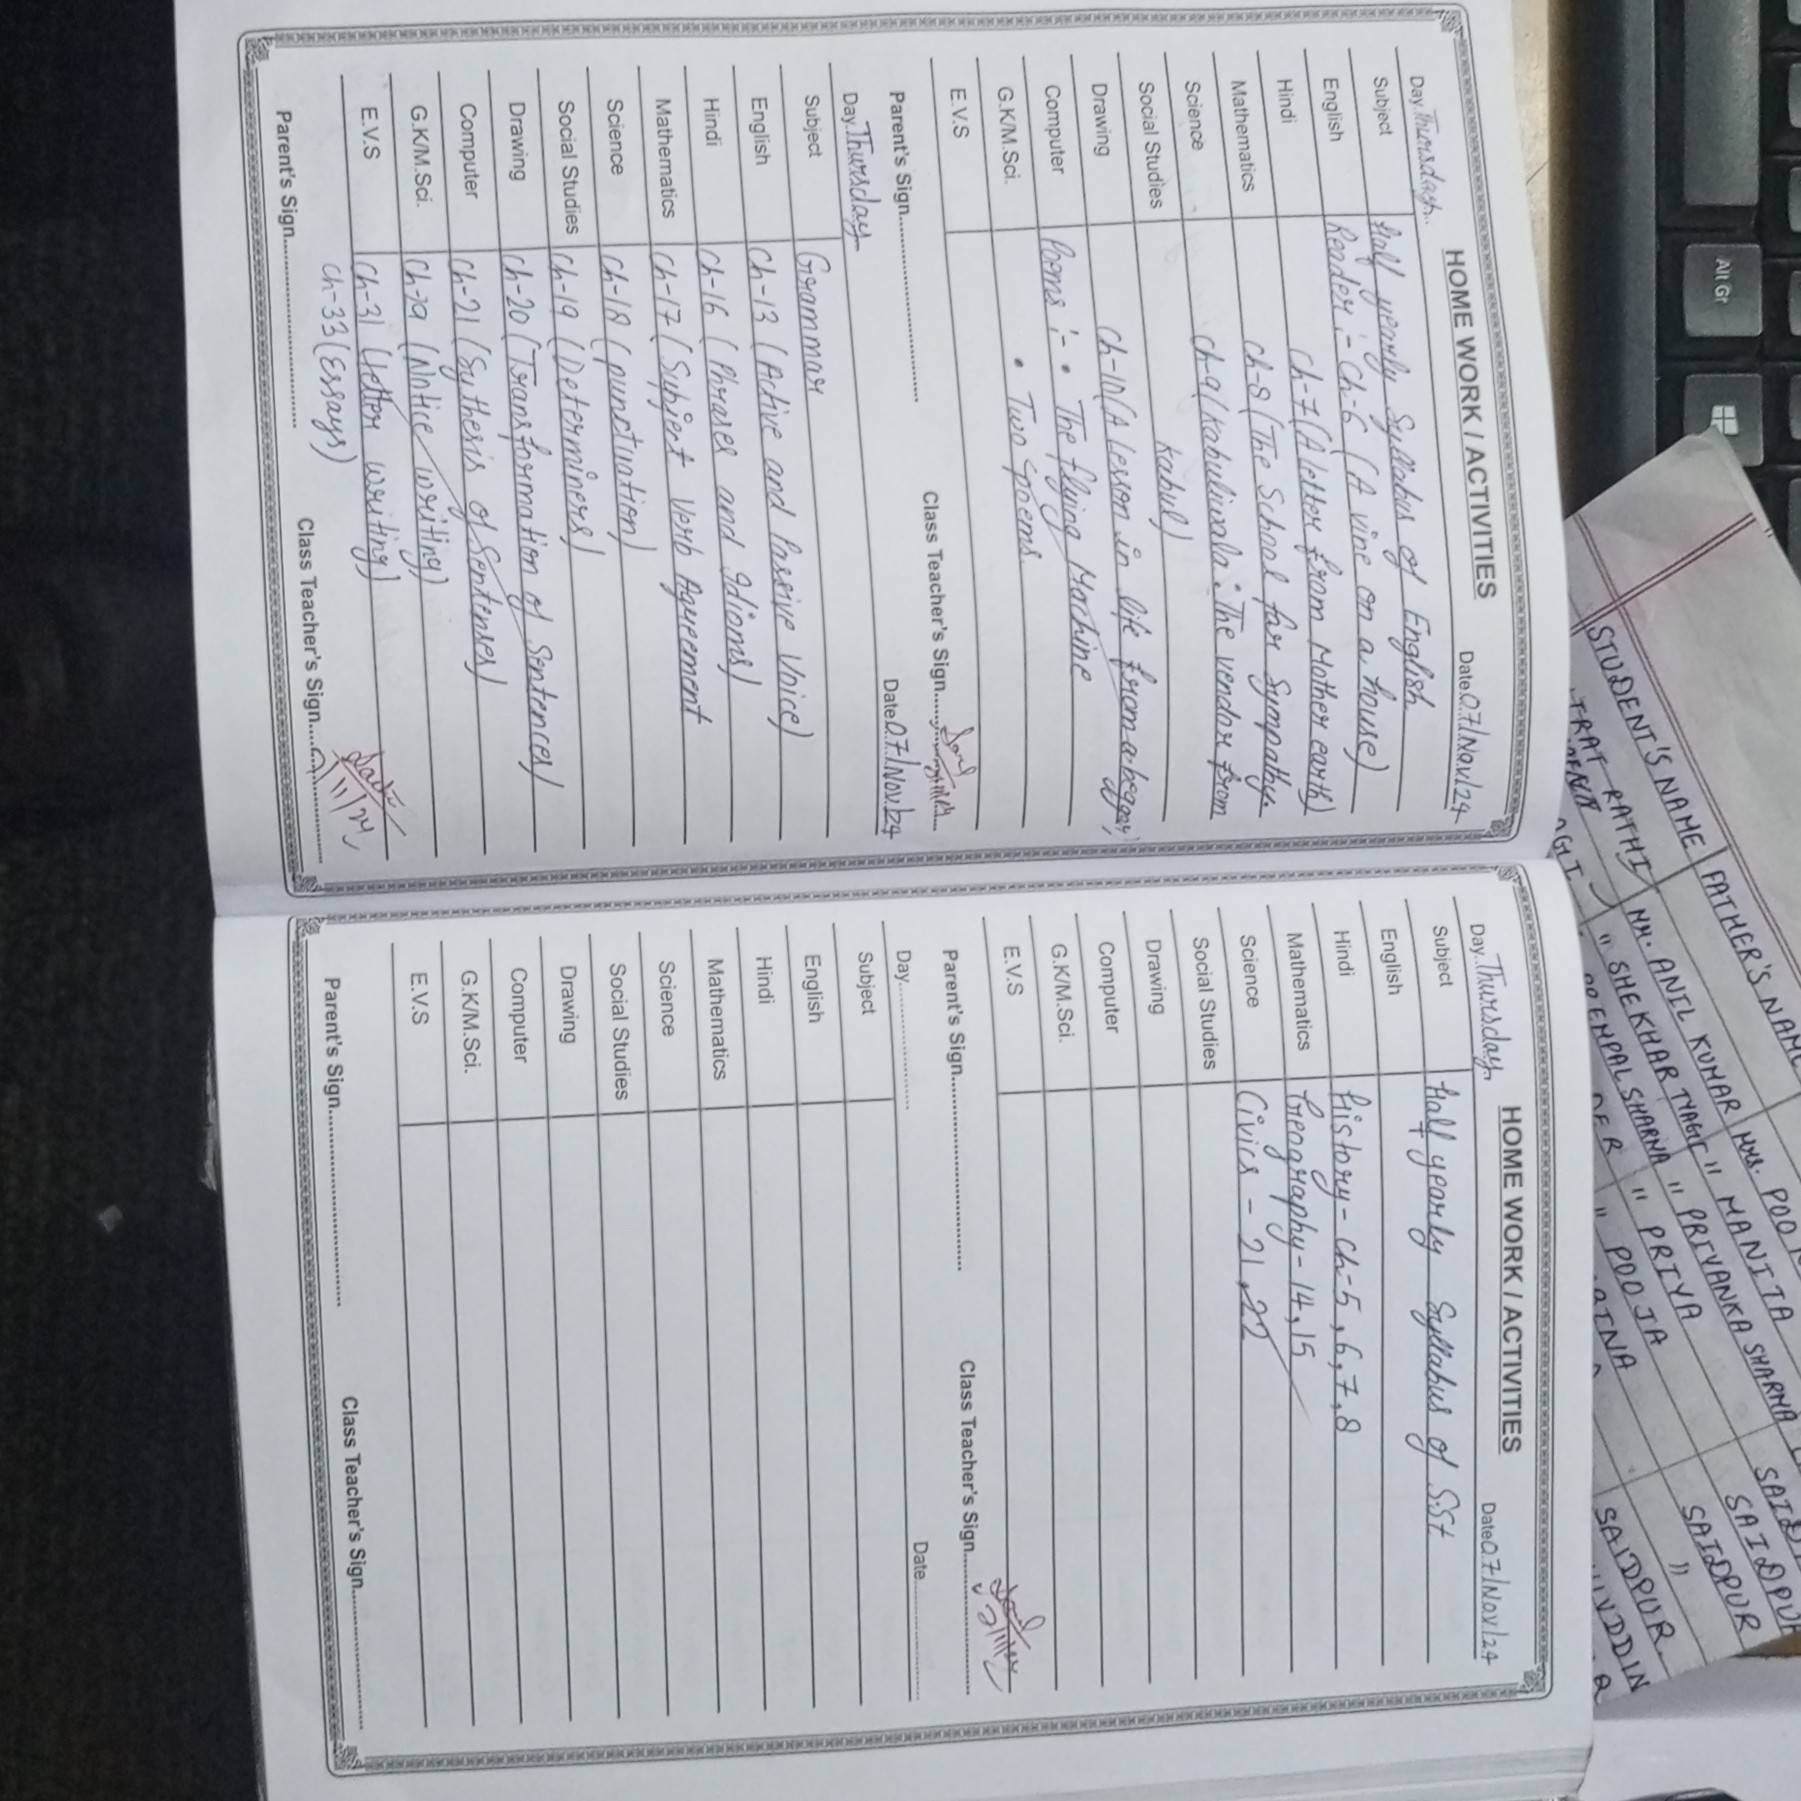 HOME WORK / ACTIVITIES
Day Thursday Date 07/Nov/24
Subject Half yearly Syllabus of English
English Reader :- Ch-6 (A vine on a house)
Hindi ch-7 (A letter from Mother earth)
Mathematics ch-8 (The School for Sympathy.
Science ch-9 (Kabuliwala : The vendor from
Social Studies Kabul)
Drawing ch-10 (A lesson in life from a beggar)
Computer Poems :- • The flying Machine
G.K/M.Sci. • Two
E.V.S
Parent's Sign Class Teacher's Sign
Day Thursday Date 07/Nov/24
Subject Grammar
English Ch-13 (Active and Passive Voice)
Hindi Ch-16 (Phrases and Idioms)
Mathematics Ch-17 (Subject Verb Agreement
Science ch-18 (punctuation)
Social Studies ch-19 (Determiners)
Drawing ch-20 (Transformation of Sentences)
Computer ch-21 (Sythesis of Sentenses)
G.K/M.Sci. (Notice writing)
E.V.S ch-31 (letter writing)
ch-33 (Essays)
Parent's Sign Class Teacher's Sign
HOME WORK / ACTIVITIES
Day Thursday Date 07/Nov/24
Subject Half yearly Syllabus of S.St
English
Hindi History - ch-5, 6, 7, 8
Mathematics Geography - 14, 15
Science Civics - 21, 22
Social Studies
Drawing
Computer
G.K/M.Sci.
E.V.S
Parent's Sign Class Teacher's Sign
Day Date
Subject
English
Hindi
Mathematics
Science
Social Studies
Drawing
Computer
G.K/M.Sci.
E.V.S
Parent's Sign Class Teacher's Sign
Alt Gr
STUDENT'S NAME FATHER'S NAME
RATHI MR. ANIL KUMAR MRS.
" SHEKHAR TYAGI " MANITA SAIDPUR
SHARMA " PRIYANKA SHARMA SAIDPUR
" PRIYA "
" POOJA SAIDPUR